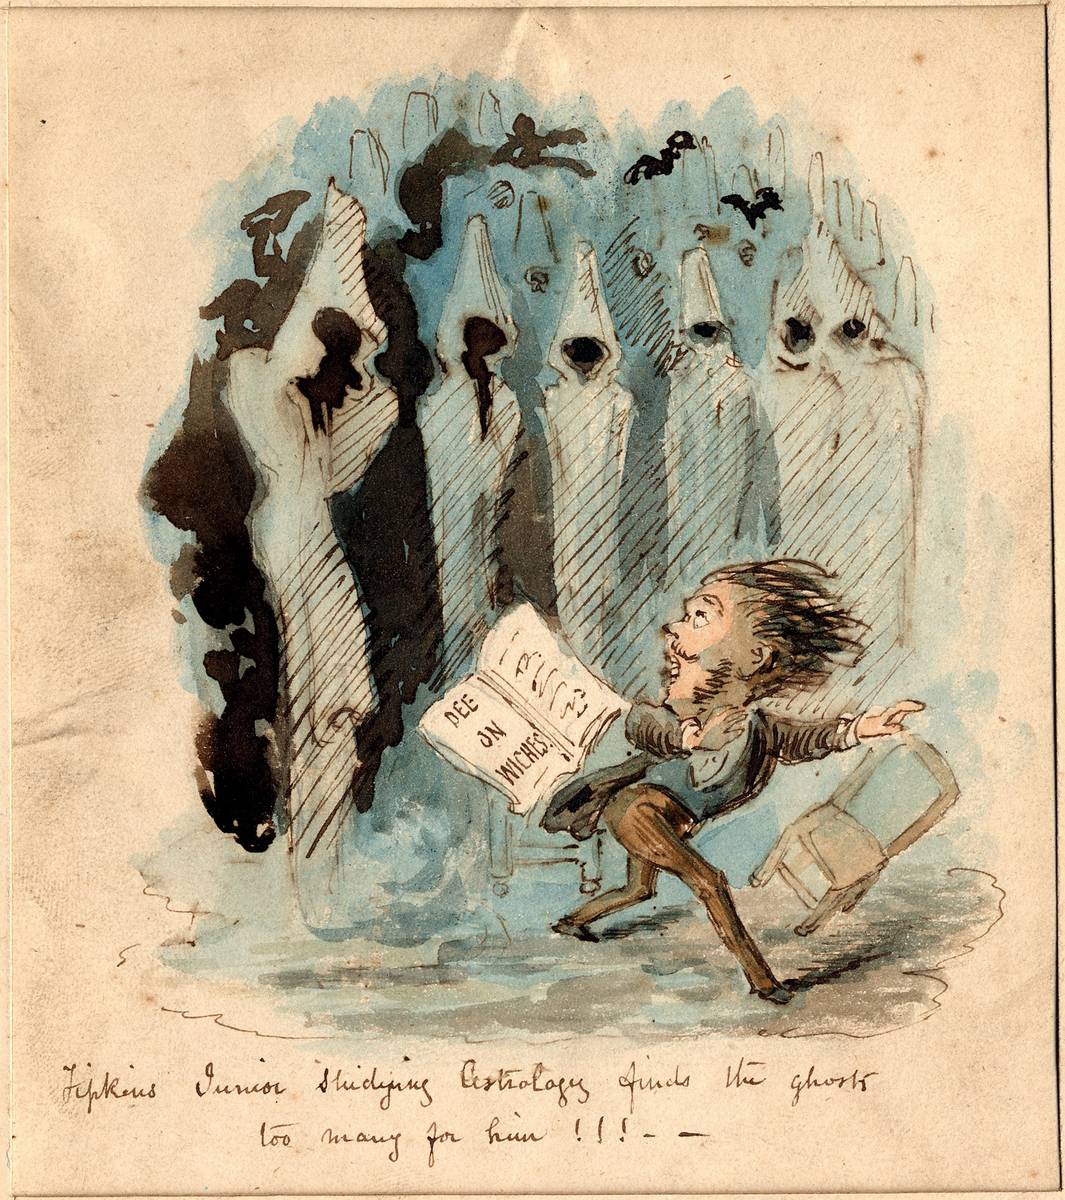 DEE
ON
WICHES!
Tipkins Junior Studying Astrology finds the ghosts
too many for him !!! - -